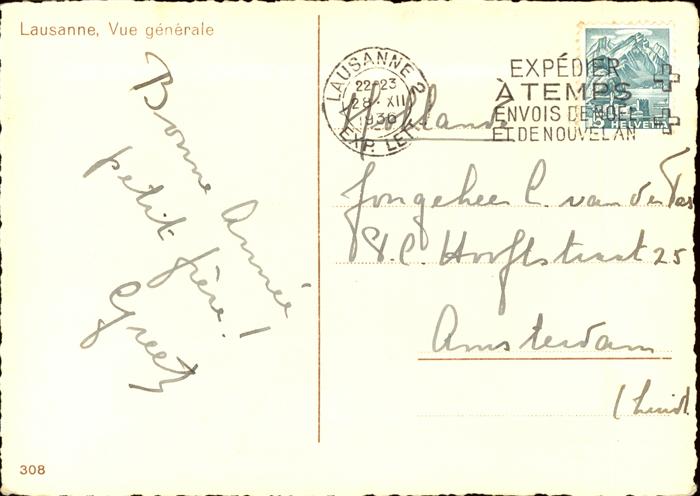 Lausanne, Vue générale
Bonne Année
petit frère!
Greet
308
LAUSANNE 2
22-23
28.XII
1936
EXP. LET
EXPÉDIER
À TEMPS
ENVOIS DE NOËL
ET DE NOUVEL AN
HELVETIA
Holland
Jongeheer C. van der
P.C. Hooftstraat 25
Amsterdam